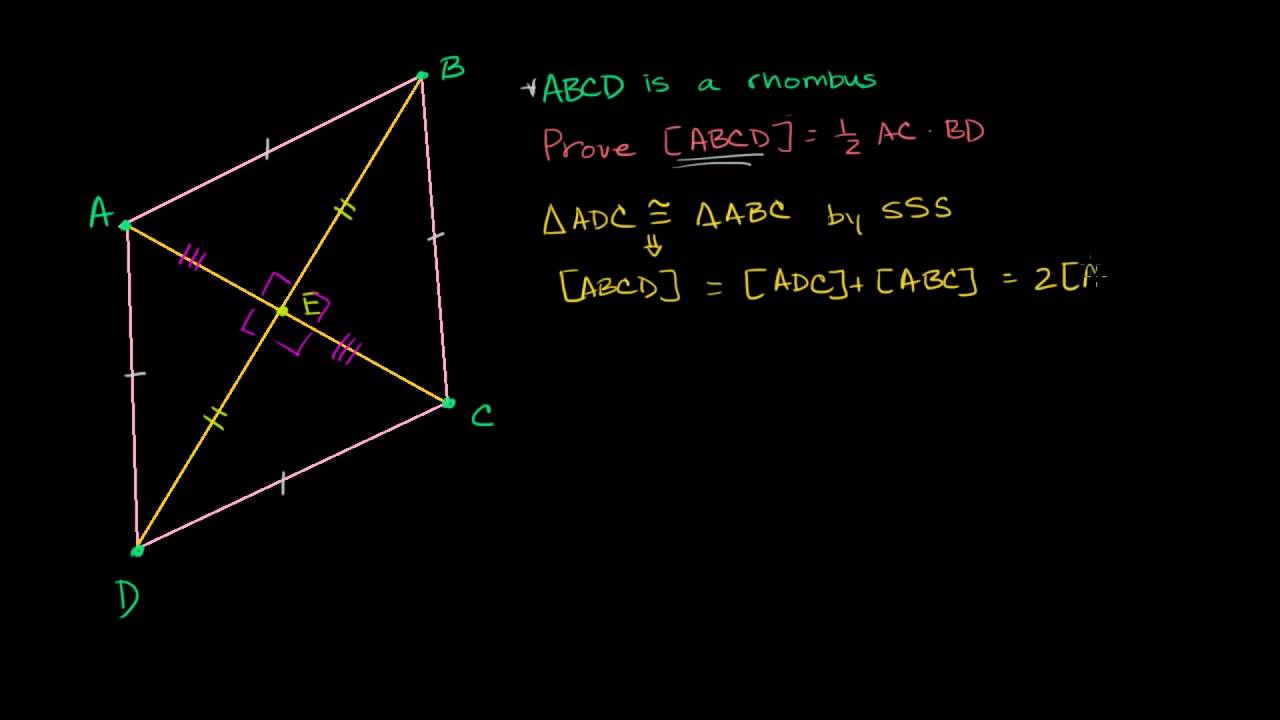 B
ABCD is a rhombus
Prove [ABCD] = 1/2 AC · BD
A
ΔADC ≅ ΔABC by SSS
⇓
[ABCD] = [ADC] + [ABC] = 2[A
E
C
D